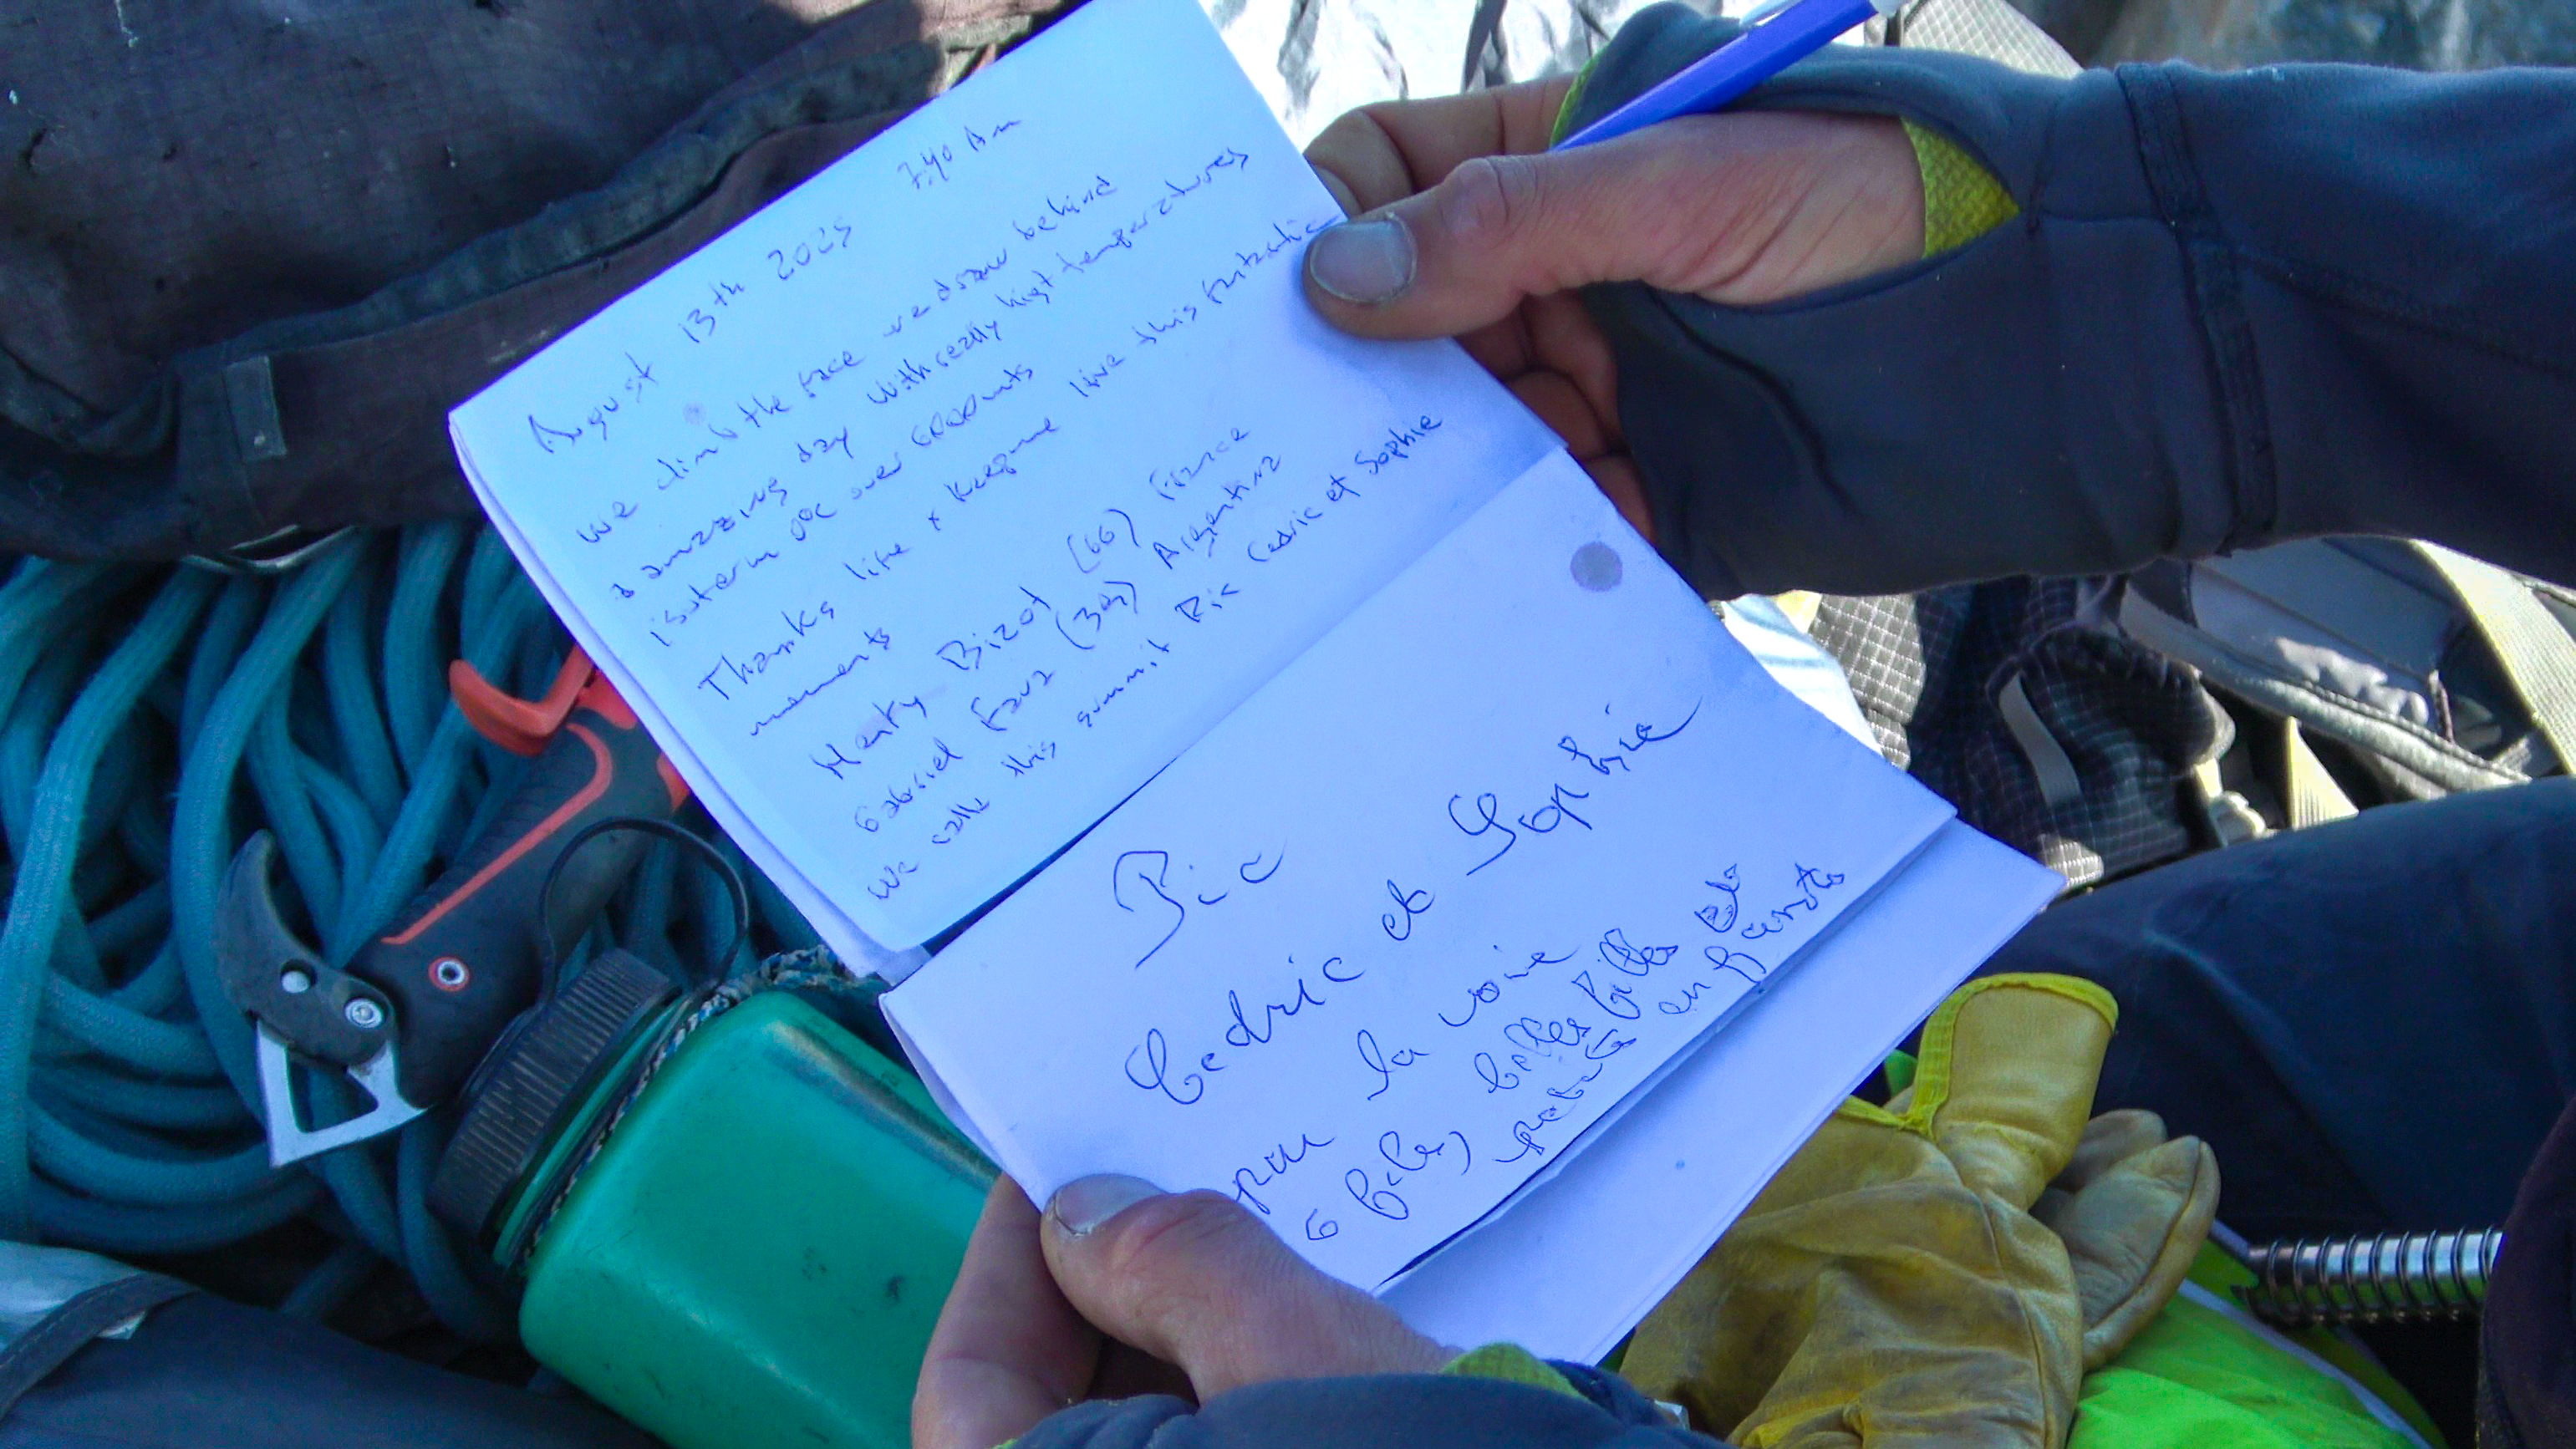 August 13th 2025 7:40 Am
we climb the face we draw behind
a amazzing day with really higt temperatures
isoterm 0°c over 6000mts
Thanks live x keepme live this fantastic
moments
Henry Bizot (66) France
Gabriel Fava (39) Argentina
We calls this summit Pic Cedric et Sophie
Pic
Cedric et Sophie
par la voie
6 belles filles et
petits en parots